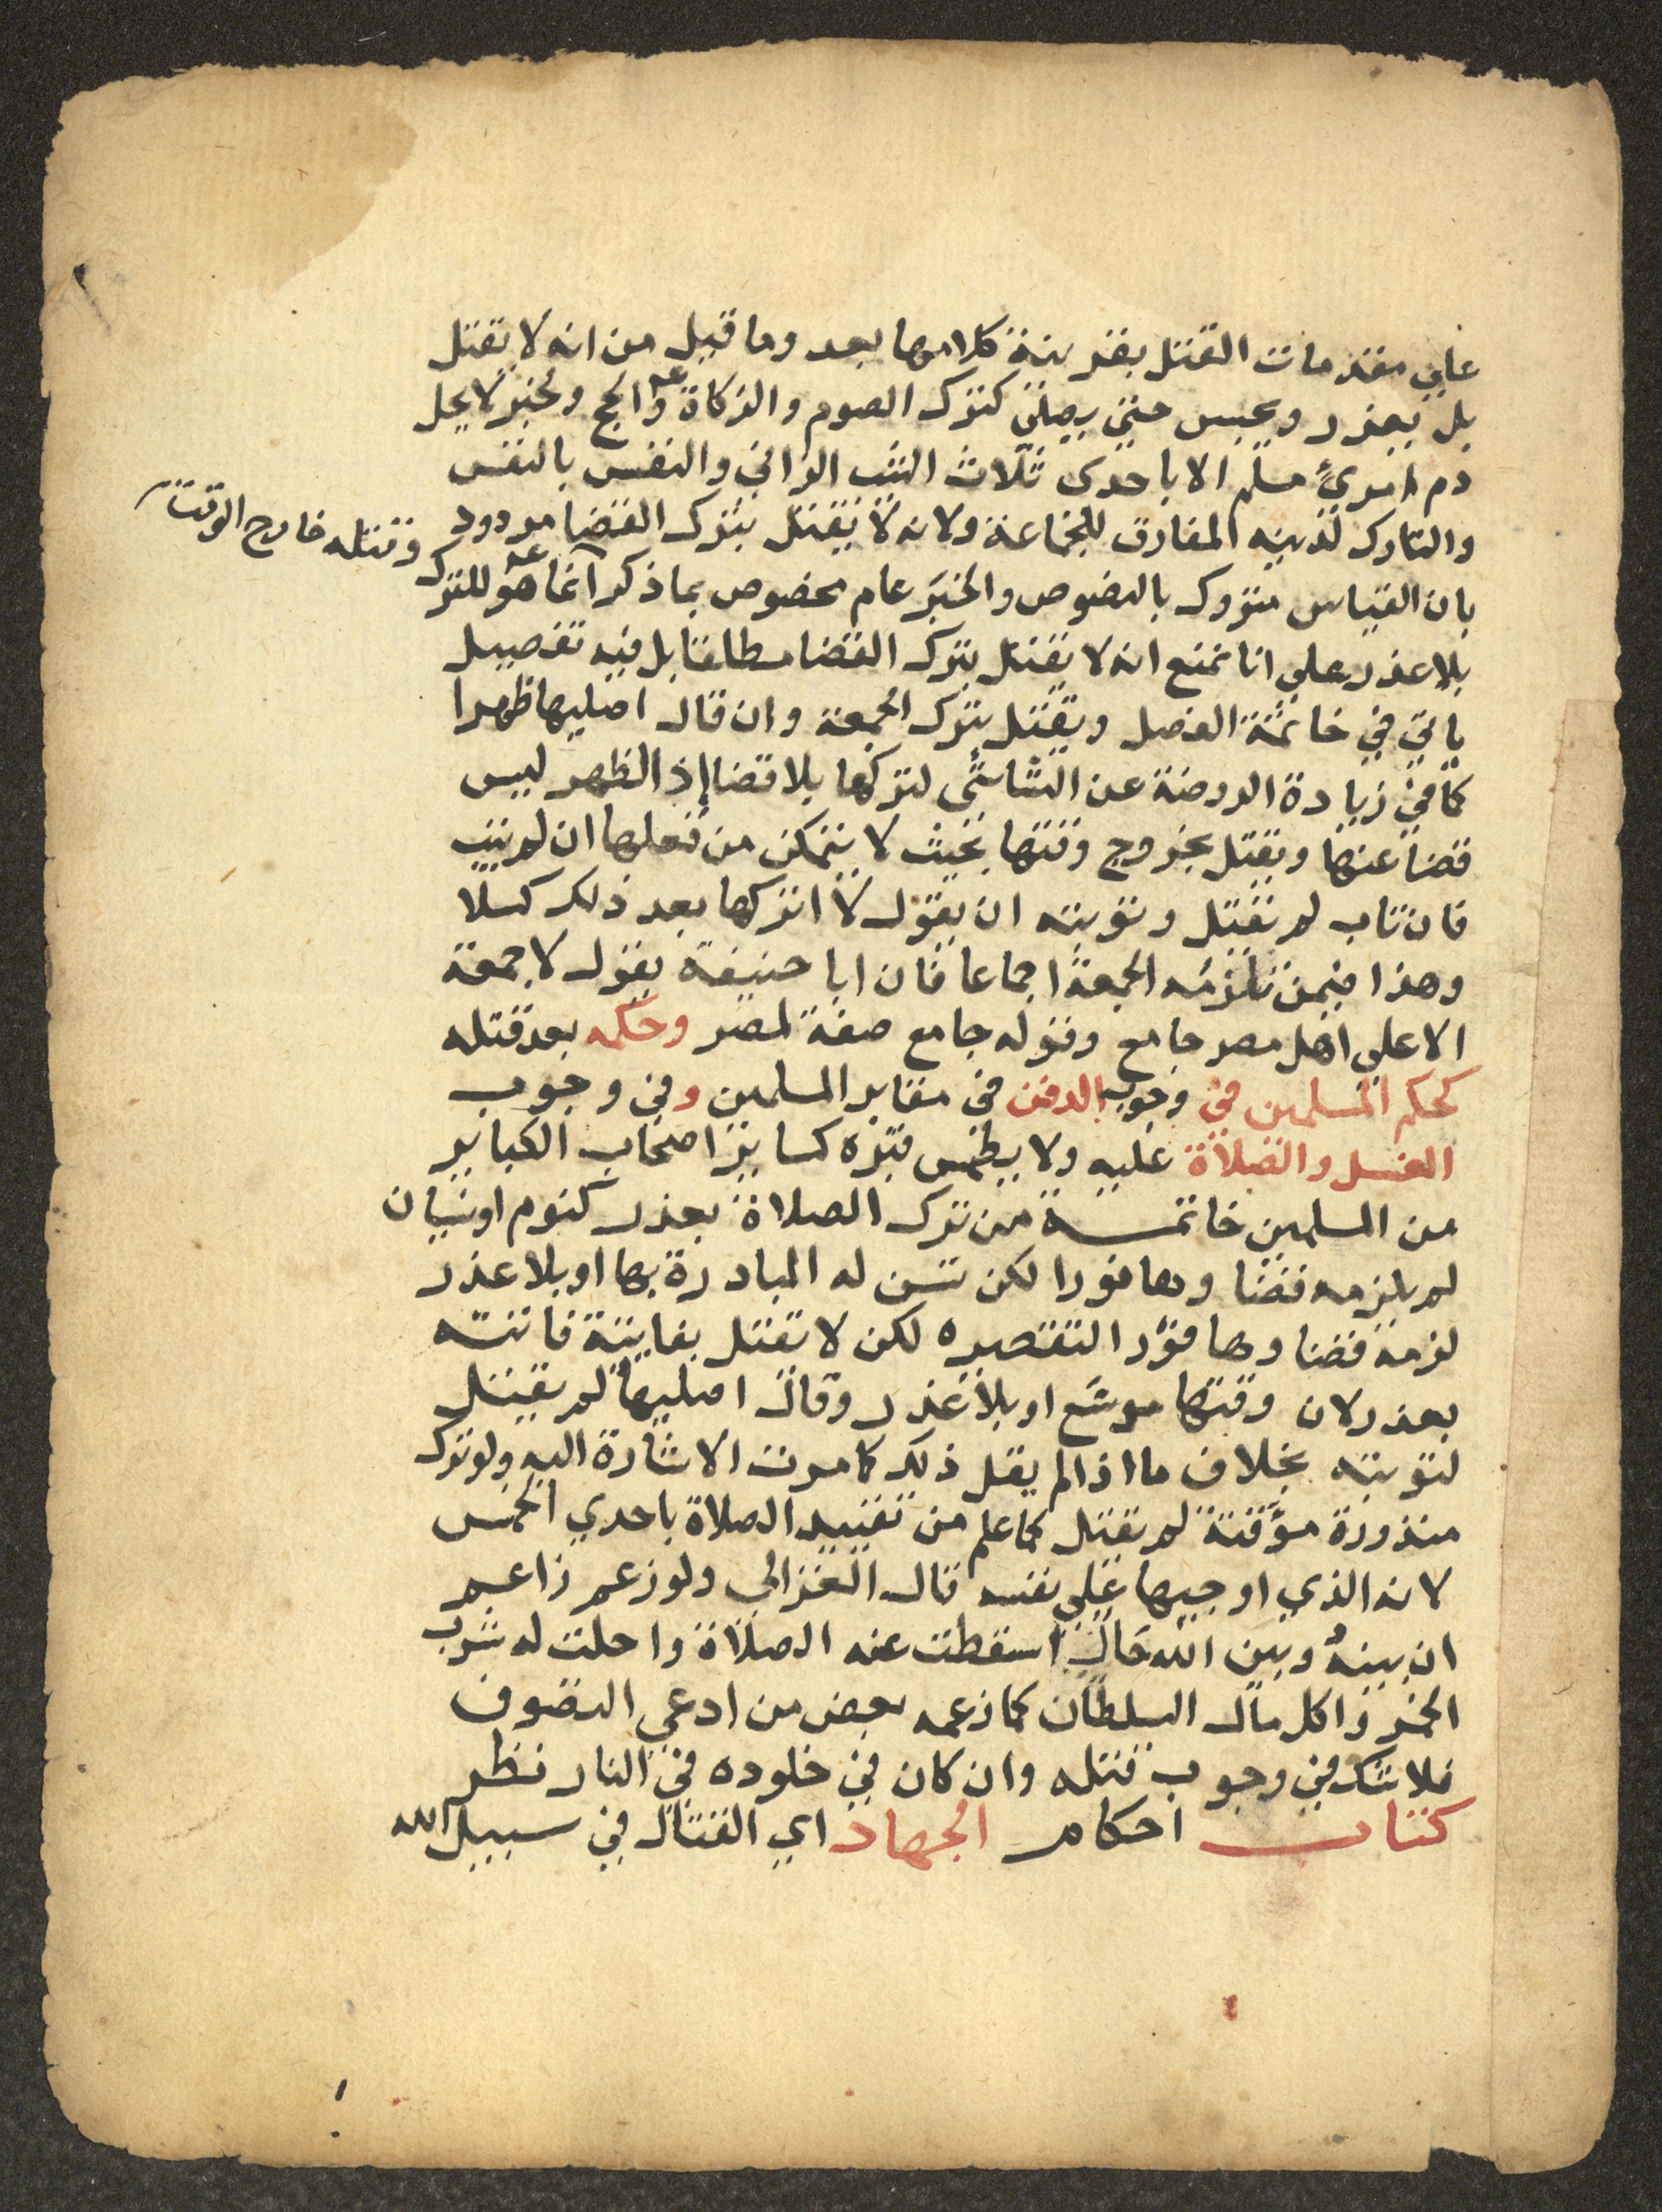 علي مقدمات القتل بقرينة كلامها بعد وما قيل من انه لا يقتل
بل يعذر ويحبس حتي يصلي كترك الصوم والزكاة والحج ولخبر لا يحل
دم امرئ مسلم الا باحدى ثلاث الثيب الزاني والنفس بالنفس
والتارك لدينه المفارق للجماعة ولانه لا يقتل بترك القضا مردود
بان القياس متروك بالنصوص والخبر عام مخصوص بما ذكر انما هو للترك وقتله خارج الوقت
بلا عذر علي انا نمنع انه لا يقتل بترك القضا مطلقا بل فيه تفصيل
ياتي في خاتمة الفصل ويقتل بترك الجمعة وان قال اصليها ظهرا
كما في زيادة الروضة عن الشاشي لتركها بلا قضا إذ الظهر ليس
قضا عنها ويقتل بخروج وقتها بحيث لا يتمكن من فعلها ان لم يتب
فان تاب لم يقتل وتوبته ان يقول لا اتركها بعد ذلك كسلا
وهذا فيمن تلزمه الجمعة اجماعا فان ابا حنيفة يقول لا جمعة
الا علي اهل مصر جامع وقوله جامع صفة لمصر وحكمه بعد قتله
كحكم المسلمين في وجوب الدفن في مقابر المسلمين وفي وجوب
الغسل والصلاة عليه ولا يطمس قبره كساير اصحاب الكباير
من المسلمين خاتمة من ترك الصلاة بعذر كنوم او نسيان
لم يلزمه قضاوها فورا لكن تسن له المبادرة بها او بلا عذر
لزمه قضاوها فورا لتقصيره لكن لا تقتل بفايتة فاتته
بعذر لان وقتها موسع او بلا عذر وقال اصليها لم يقتل
لتوبته بخلاف ما اذا لم يقل ذلك كما مرت الاشارة اليه ولو ترك
منذورة مؤقتة لم يقتل كما علم من تقييد الصلاة باحدي الخمس
لانه الذي اوجبها علي نفسه قال الغزالي ولو زعم زاعم
ان بينه وبين الله حالة اسقطت عنه الصلاة واحلت له شرب
الخمر واكل مال السلطان كما زعمه بعض من ادعي التصوف
فلا شك في وجوب قتله وان كان في خلوده في النار نظر
كتاب احكام الجهاد اي القتال في سبيل الله